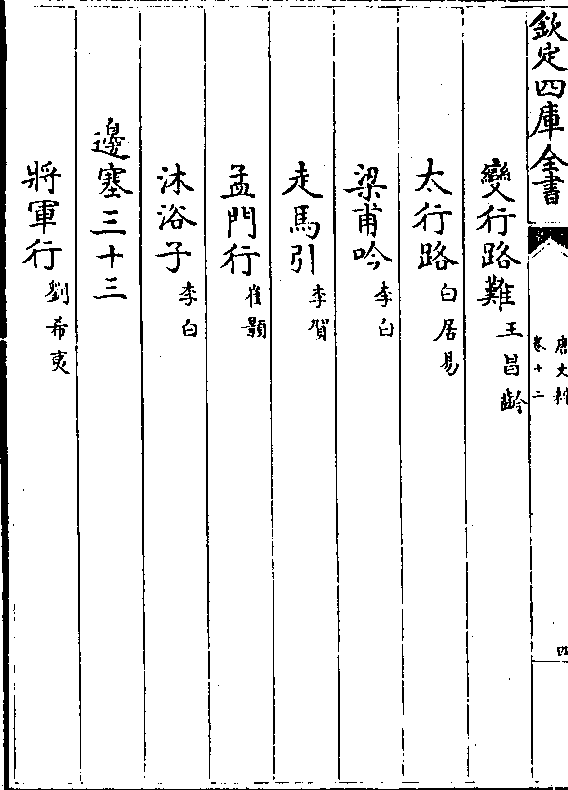 欽定四庫全書
唐文粹
卷十二
四
變行路難 王昌齡
太行路 白居易
梁甫吟 李白
走馬引 李賀
孟門行 崔顥
沐浴子 李白
邊塞三十三
將軍行 劉希夷